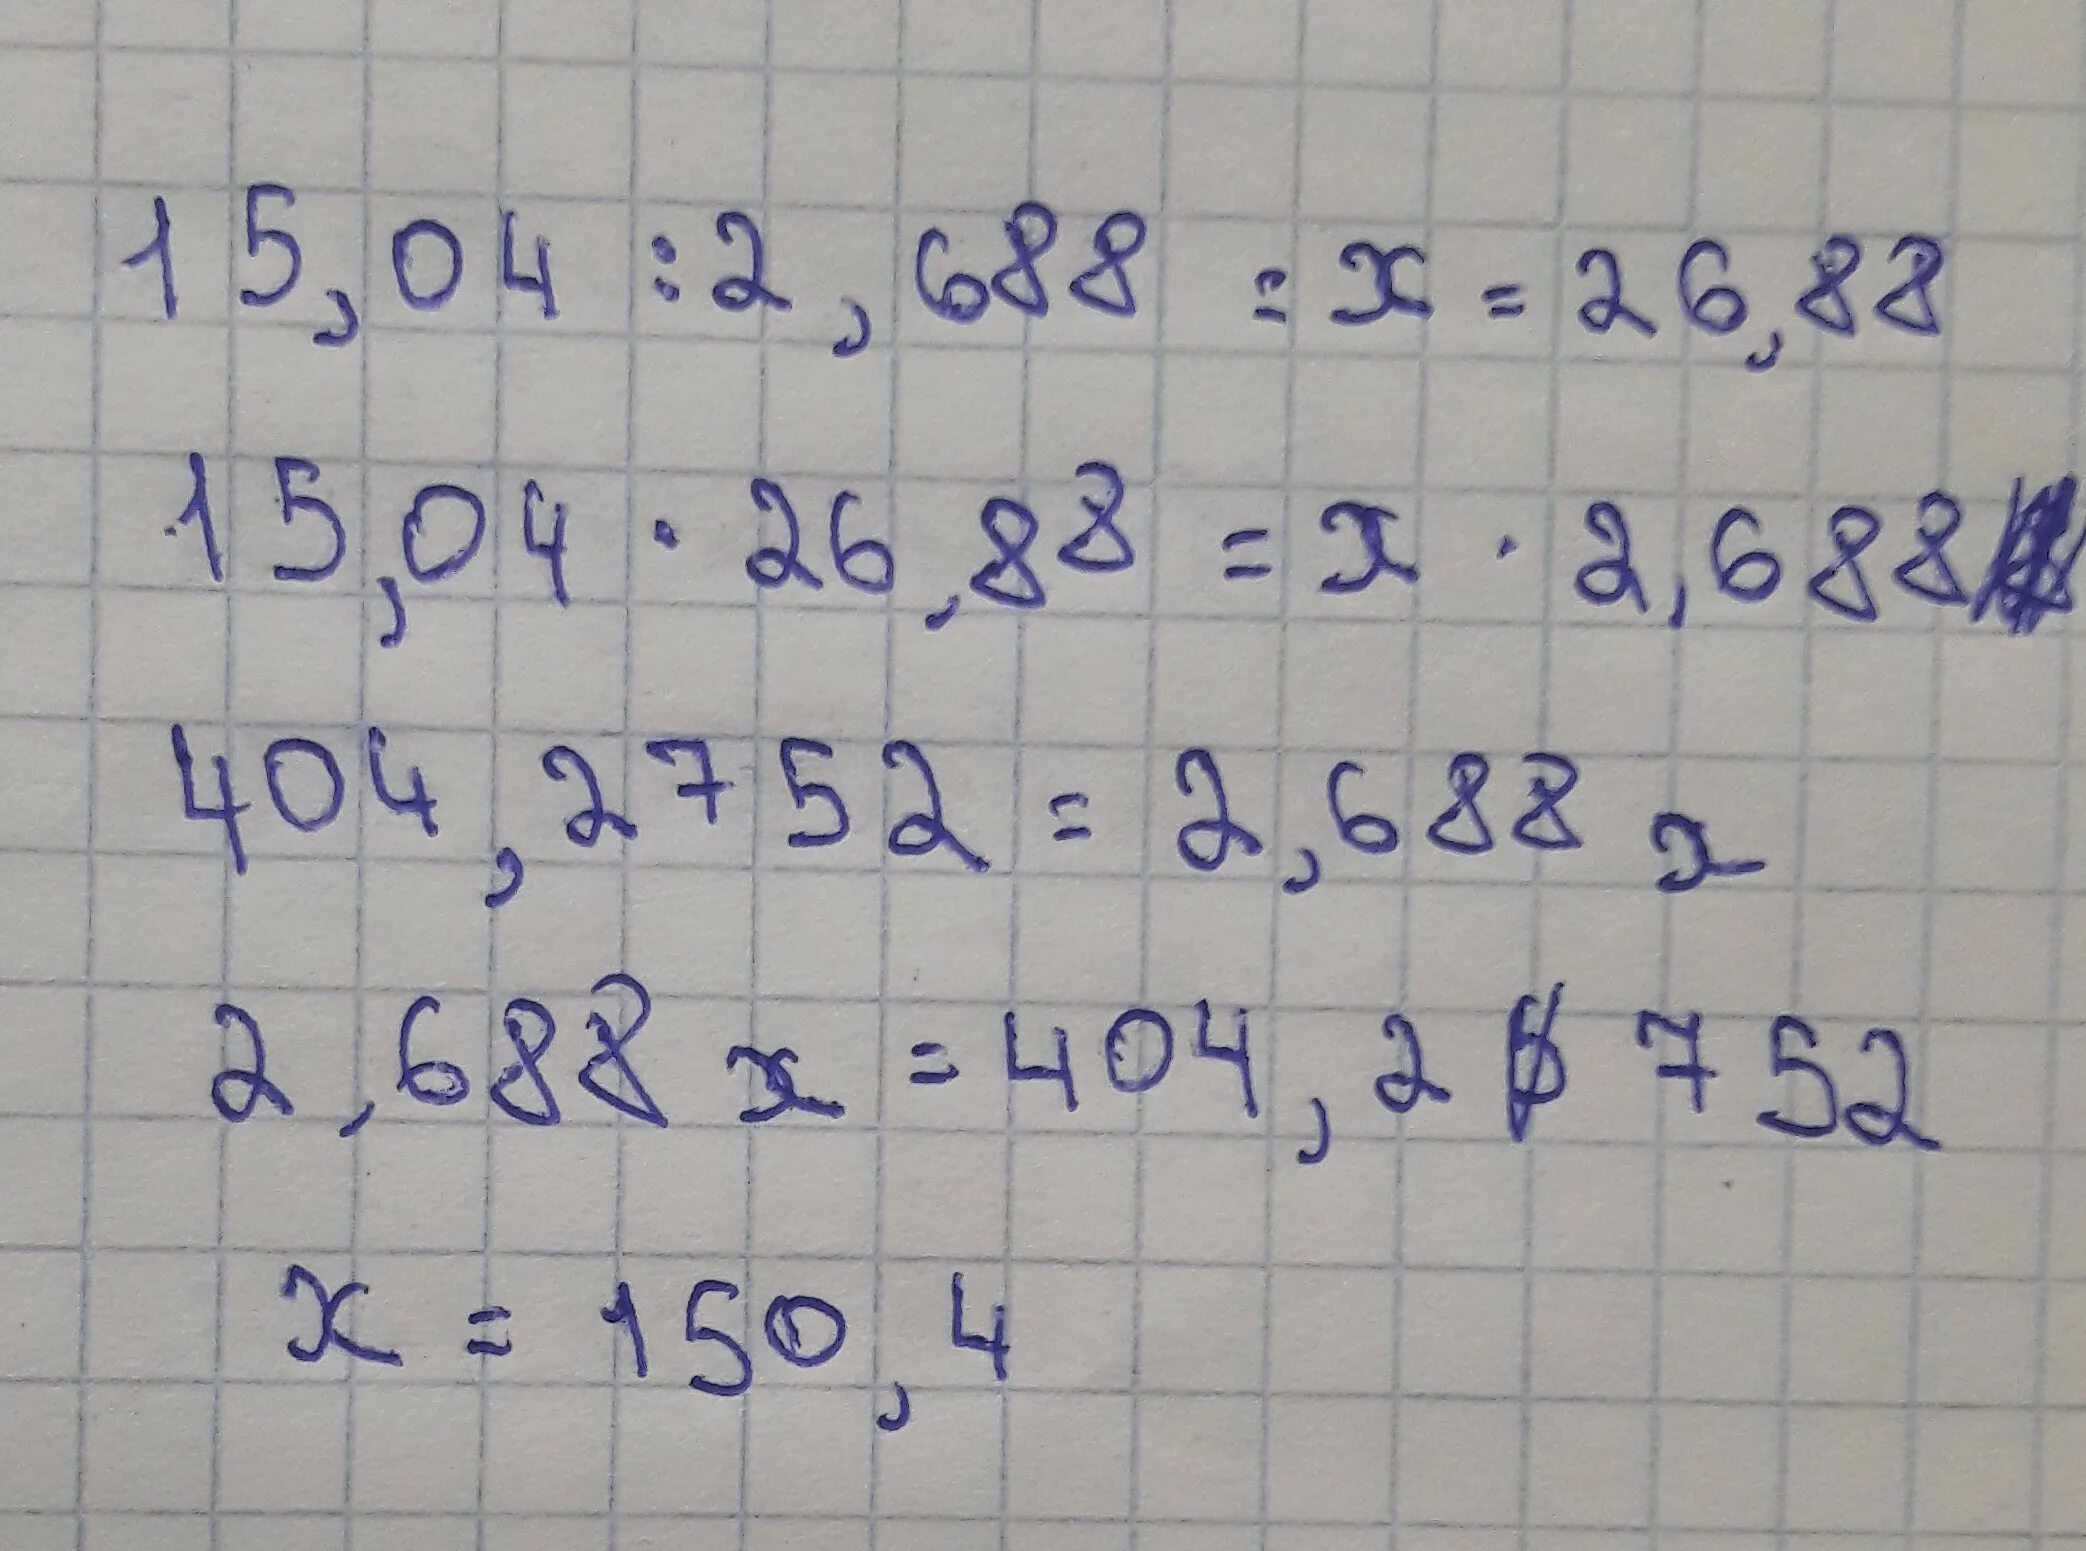 15,04 : 2,688 = x = 26,88
15,04 · 26,88 = x · 2,688
404,2752 = 2,688 x
2,688 x = 404,2 752
x = 150,4